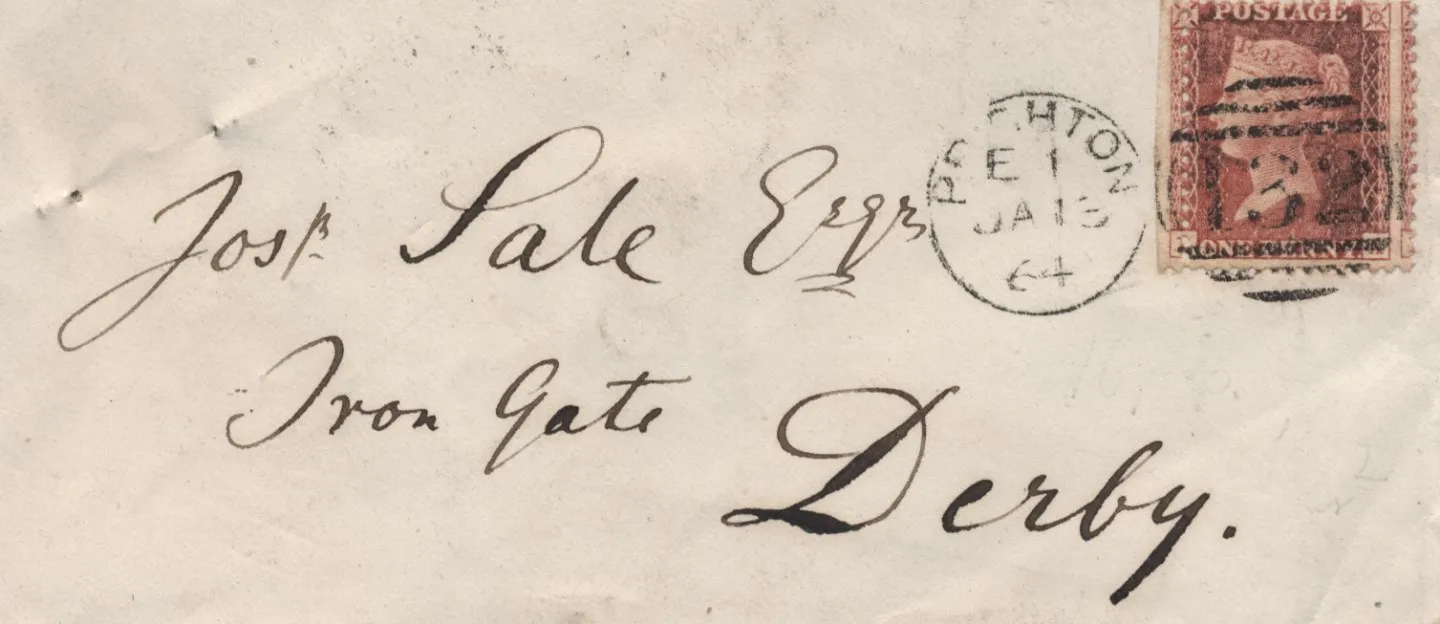 POSTAGE
BRIGHTON
E 1
JA 13
64
132
ONE PENNY
Josh Sale Esqr
Iron Gate
Derby.